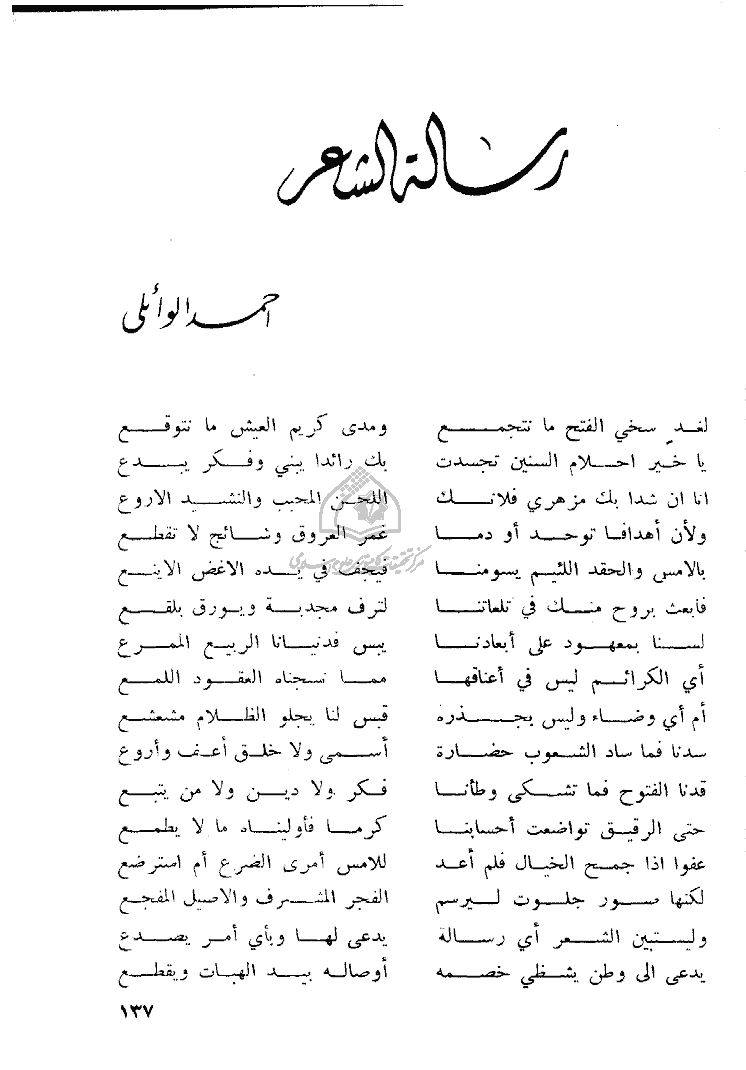 رسالة الشاعر
احمد الوائلي
لغد سخي الفتح ما نتجمع ومدى كريم العيش ما نتوقع
يا خير احلام السنين تجسدت بك رائدا يبني وفكر يبدع
انا ان شدا بك مزهري فلانك اللحن المحبب والنشيد الاروع
ولأن أهدافا توحد أو دما غمر العروق وشائج لا تقطع
بالامس والحقد اللئيم يسومنا فيجف في يده الاغض الاينع
فابعث بروح منك في تلعاتنا لترف مجدبة ويورق بلقع
لسنا بمعهود على أبعادنا يبس فدنيانا الربيع الممرع
أي الكرائم ليس في أعناقها مما نسجناه العقود اللمع
أم أي وضاء وليس بجذره قبس لنا يجلو الظلام مشعشع
سدنا فما ساد الشعوب حضارة أسمى ولا خلق أعف وأروع
قدنا الفتوح فما تشكى وطأنا فكر ولا دين ولا من يتبع
حتى الرقيق تواضعت أحسابنا كرما فأوليناه ما لا يطمع
عفوا اذا جمح الخيال فلم أعد للامس أمرى الضرع أم استرضع
لكنها صور جلوت ليرسم الفجر المشرف والاصيل المفجع
وليستبين الشعر أي رسالة يدعى لها وبأي أمر يصدع
يدعى الى وطن يشظي خصمه أوصاله بيد الهبات ويقطع
١٣٧